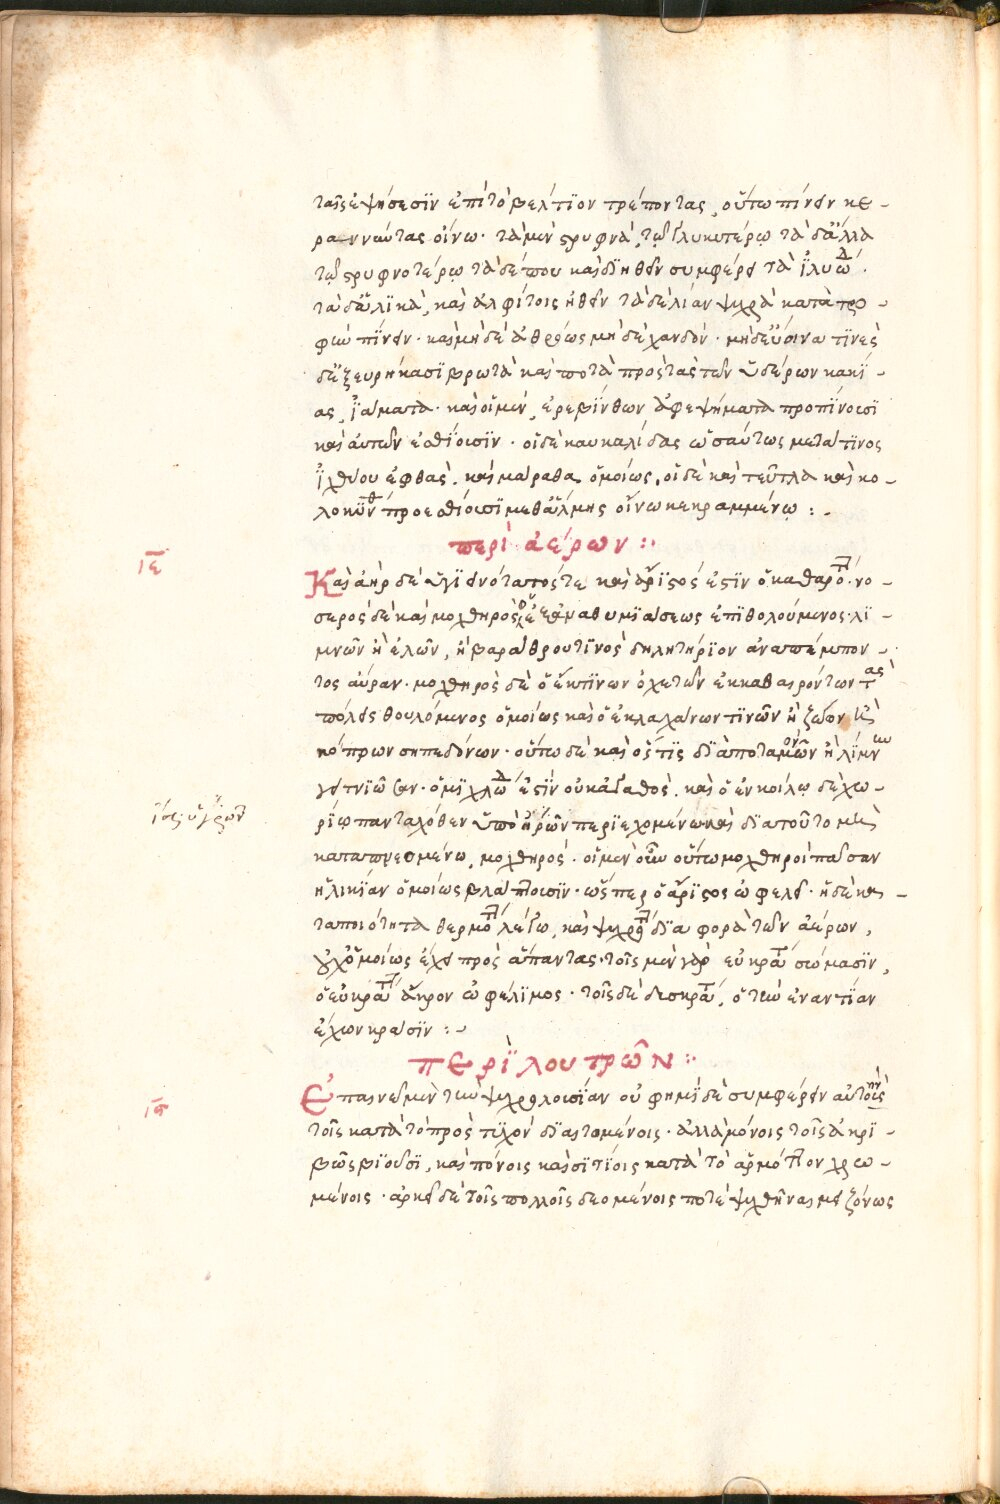 ταῖς ἑψήσεσϊν ἐπὶ τὸ βελτῖον τρέποντας, οὕτω πίνειν κε-
ραννῦντας οἴνω· τὰ μὲν στρυφνὰ, τῷ γλυκυτέρῳ τὰ δ' ἄλλα
τῷ στρυφνοτέρῳ τὰ δέ που καὶ διηθεῖν συμφέρει τὰ ἰλυώδ.
τὰ δ' ἅλϊκὰ, καὶ ἀλφίτοις ἠθεῖν τὰ δὲ λίαν ψυχρὰ κατὰ τρο-
φὼ πίνειν· καὶ μὴ δὲ ἀθρόως μὴ δὲ χανδόν· μὴ δ' εὔοινα τϊνὲς
δ' ἐξευρήκασϊ βρωτὰ καὶ ποτὰ πρὸς τὰς τῶν ὑδέρων κακΐ-
ας, ἰάματα· καὶ οἱ μὲν, ἐρεβίνθων ἀφεψήματα προπΐνουσϊ
καὶ αὐτῶν ἐσθΐουσϊν· οἱ δὲ καυκαλίδας ὡσαύτως μετά τϊνος
ἰχθύου ἐφθὰς. καὶ μάραθα ὁμοίως. οἱ δὲ καὶ τεῦτλα καὶ κο-
λοκύνθ προεσθίουσϊ μεθ' ἅλμης οἴνω κεκραμμένῳ :-
περὶ ἀέρων :·
ιε
Καὶ ἀὴρ δὲ ὑγϊεινότατός τε καὶ ἄρϊστός ἐστϊν ὁ καθαρότ. νο-
σερὸς δὲ καὶ μοχθηρὸς, ὁ ἐξ ἀναθυμϊάσεως ἐπϊθολούμενος· λϊ-
μνῶν ἢ ἑλῶν, ἢ βαράθρου τϊνὸς δηλητήρϊον ἀναπέμπον-
τος αὔραν· μοχθηρὸς δὲ ὁ ἔκ τϊνων ὀχετῶν ἐκκαθαιρόντων τὰς
πόλεις θολούμενος ὁμοίως καὶ ὁ ἐκ λαχάνων τϊνῶν ἢ ζώων καὶ
κόπρων σηπεδόνων· οὕτω δὲ καὶ ὅστϊς δϊὰ ποταμὸν ἢ λίμνω
γειτνϊῶσαν· ὁμϊχλώδ ἐστϊν οὐκ ἀγαθὸς. καὶ ὁ ἐν κοίλῳ δὲ χω-
ἴσως ὑγρῶν
ρίῳ πανταχόθεν ὑπὸ ὀρῶν περϊεχομένω καὶ δϊατοῦτο μὴ
καταπνεομένω, μοχθηρός· οἱ μὲν οὖν οὕτω μοχθηροὶ πᾶσαν
ἡλικϊαν ὁμοίως βλάπτουσϊν· ὥσπερ ὁ ἄρϊστος ὠφελεῖ· ἡ δὲ κα-
τα ποιότητα θερμότ λέγω, καὶ ψυχρότ δϊαφορὰ τῶν ἀέρων,
οὐχ' ὁμοίως ἔχει πρὸς ἅπαντας· τοῖς μὲν γὰρ εὐκράτ σώμασϊν,
ὁ εὐκρατ ἀὴρ ὠφέλϊμος· τοῖς δὲ δυσκράτ, ὁ τὼ ἐναντϊαν
ἔχων κρᾶσϊν :-
περὶ λουτρῶν :·
ις
Ἐπαινεῖ μὲν τὼ ψυχρολουσϊαν οὐ φημϊ δὲ συμφέρειν αὐτὴν
τοῖς κατὰ τὸ πρὸς τύχον δϊαιτωμένοις· ἀλλὰ μόνοις τοῖς ἀκρϊ-
βῶς βϊοῦσϊ, καὶ πόνοις καὶ σϊτΐοις κατὰ τὸ ἁρμόττον χρω-
μένοις· ἀρκεῖ δὲ τοῖς πολλοῖς δεομένοις ποτὲ ψυχθῆναι μειζόνως